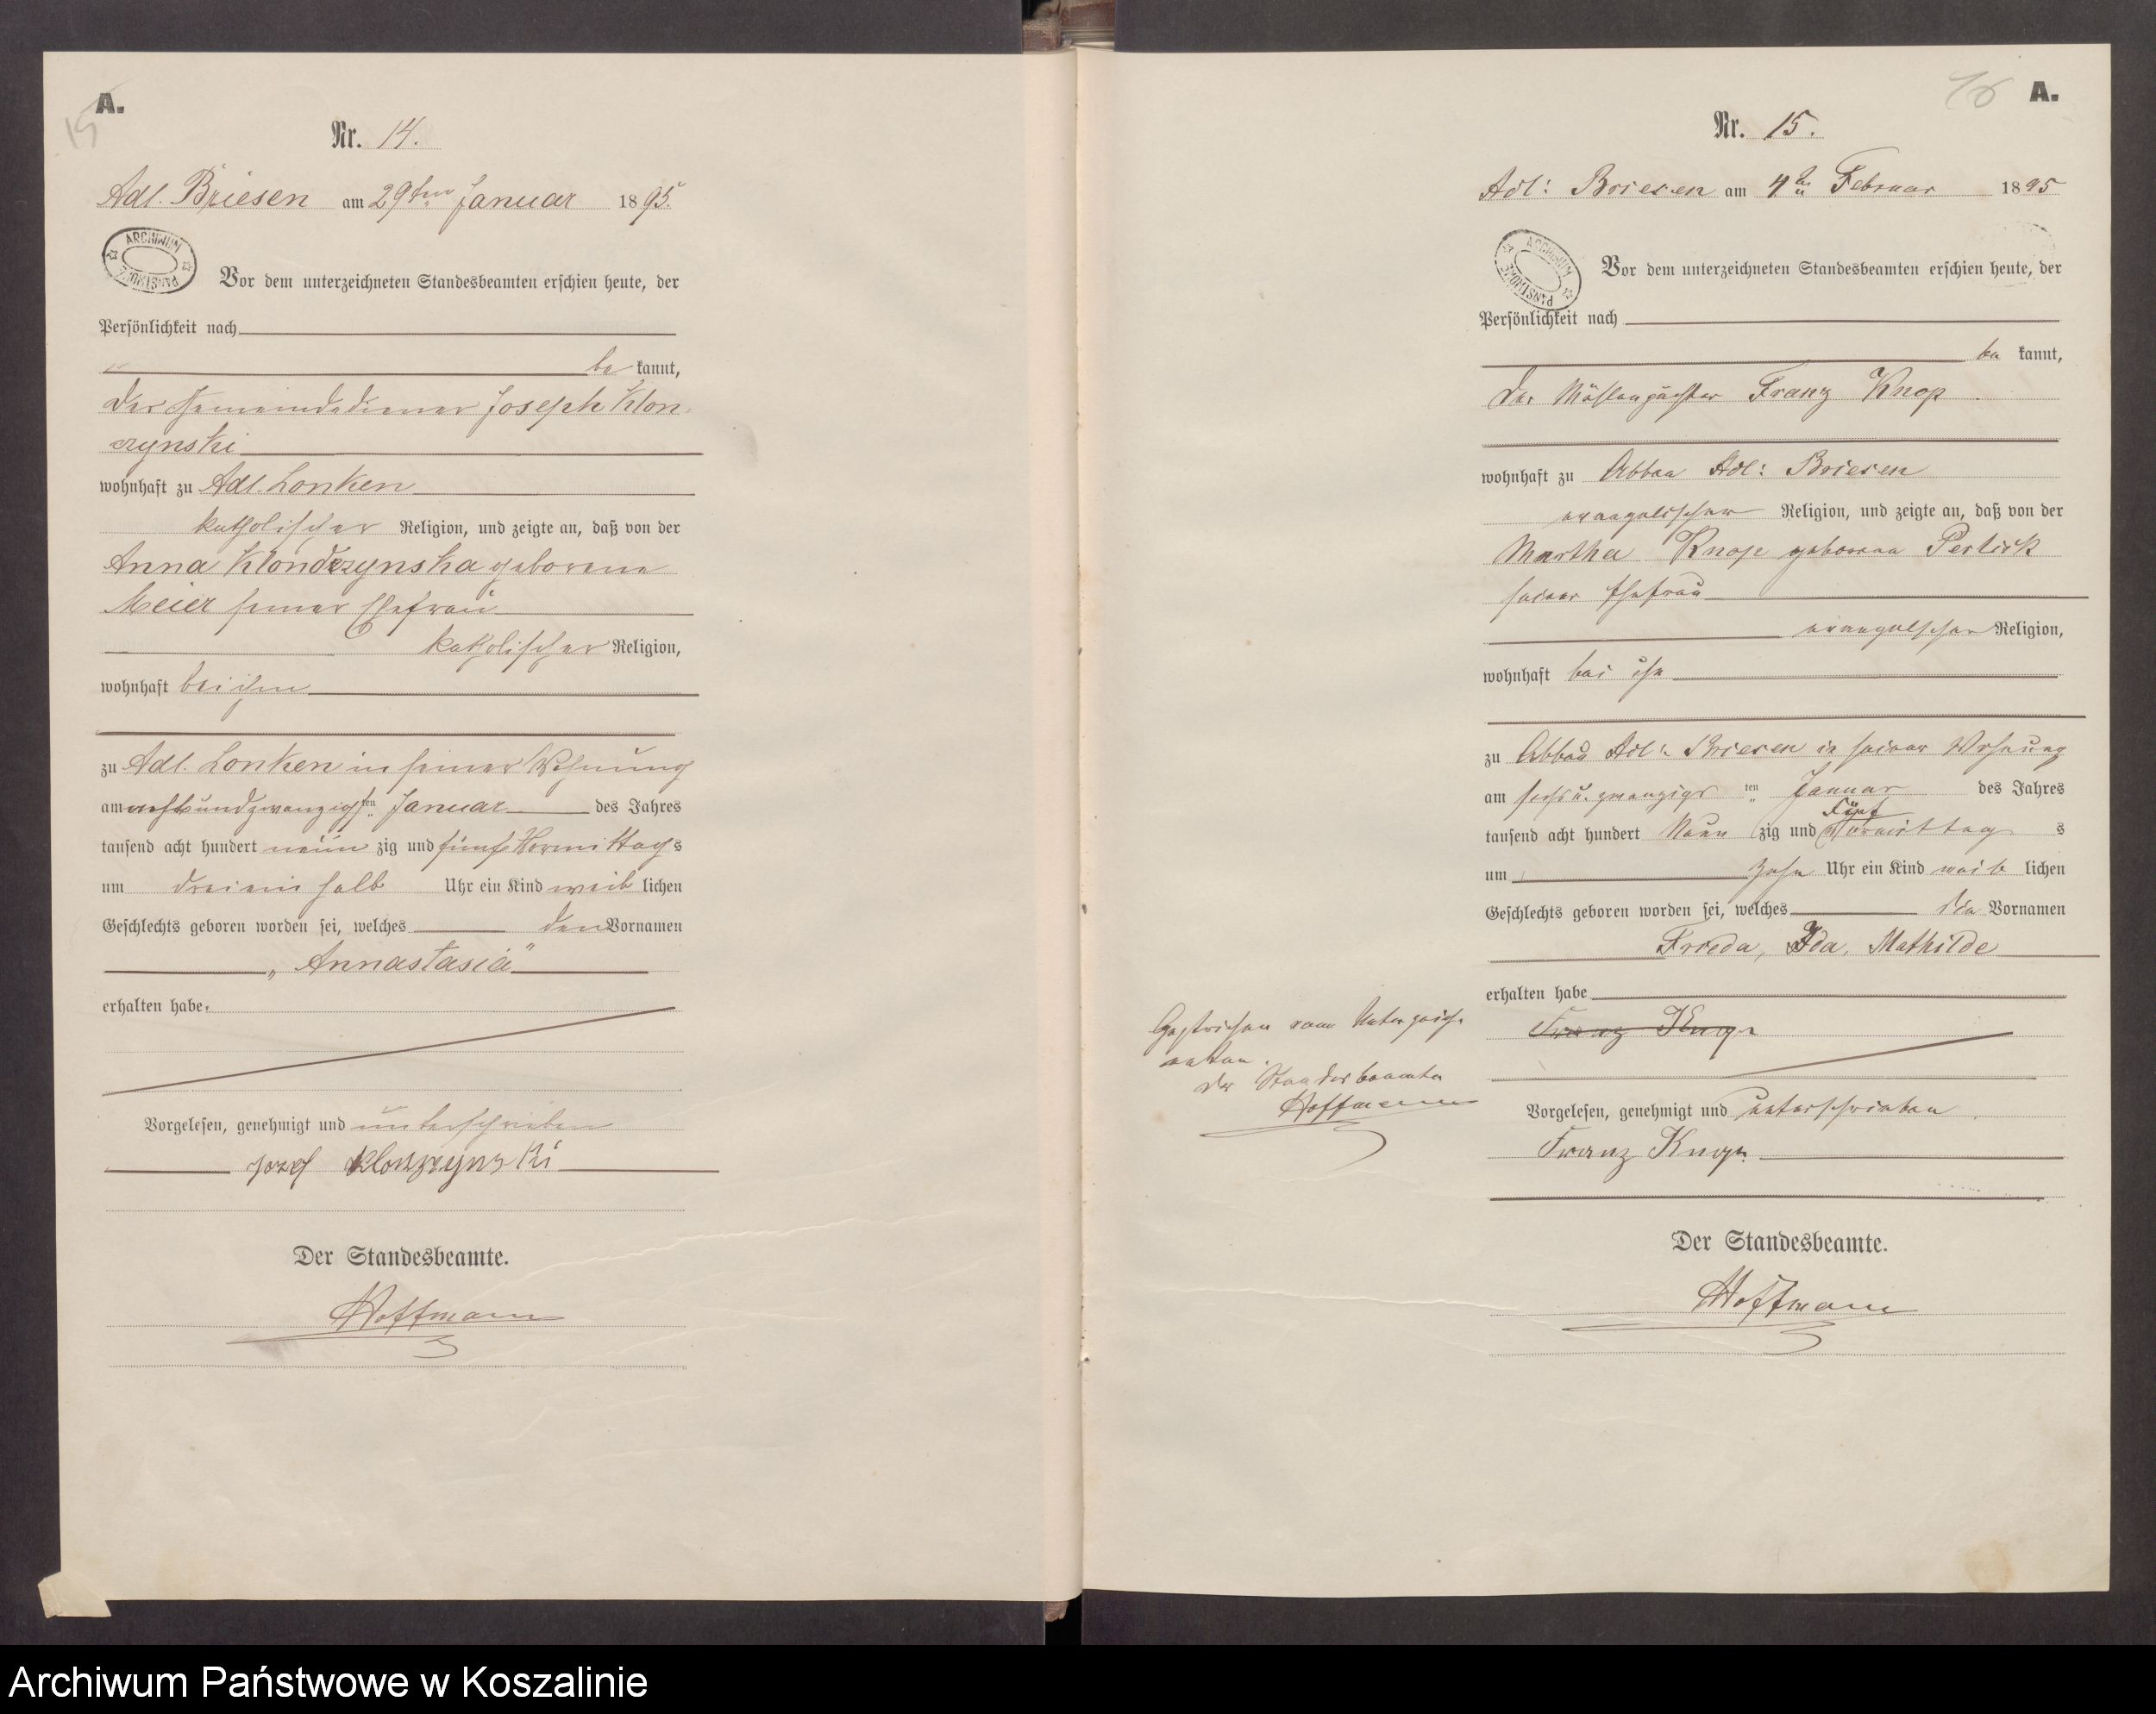 A.
15
Nr. 14.
Adl. Briesen am 29ten Januar 1895.
ARCHIWUM PAŃSTWOWE
Vor dem unterzeichneten Standesbeamten erschien heute, der
Persönlichkeit nach
be kannt,
der Gemeindediener Joseph Klon
czynski
wohnhaft zu Adl. Lonken
katholischer Religion, und zeigte an, daß von der
Anna Klondczynska geborene
Meier seiner Ehefrau
katholischer Religion,
wohnhaft bei ihm
zu Adl. Lonken in seiner Wohnung
am achtundzwanzigsten Januar des Jahres
tausend acht hundert neun zig und fünf Vormittags
um drei ein halb Uhr ein Kind weib lichen
Geschlechts geboren worden sei, welches den Vornamen
„Annastasia"
erhalten habe.
Vorgelesen, genehmigt und unterschrieben
Jozef
Der Standesbeamte.
Hoffmann
16 A.
Nr. 15.
Adl: Briesen am 4ten Februar 1895
ARCHIWUM PAŃSTWOWE
Vor dem unterzeichneten Standesbeamten erschien heute, der
Persönlichkeit nach
be kannt,
der Mühlenpächter Franz Knop
wohnhaft zu Abbau Adl: Briesen
evangelischer Religion, und zeigte an, daß von der
Martha Knop geborene Perlick
seiner Ehefrau
evangelischer Religion,
wohnhaft bei ihm
zu Abbau Adl: Briesen in seiner Wohnung
am sechs u. zwanzigsten Januar des Jahres
Fünf
tausend acht hundert Neun zig und Vormittag s
um Zehn Uhr ein Kind weib lichen
Geschlechts geboren worden sei, welches die Vornamen
Frieda, Ida, Mathilde
erhalten habe
Franz Knop
Gestrichen vom Unterzeich
neten.
Der Standesbeamte
Hoffmann
Vorgelesen, genehmigt und unterschrieben.
Franz Knop
Der Standesbeamte.
Hoffmann
Archiwum Państwowe w Koszalinie